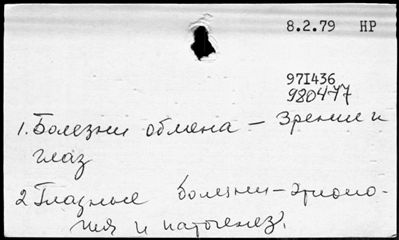 8.2.79 НР
97I436
980477
1. Болезни обмена – Зрение и
глаз
2 Глазные болезни – этиоло-
гия и патогенез.